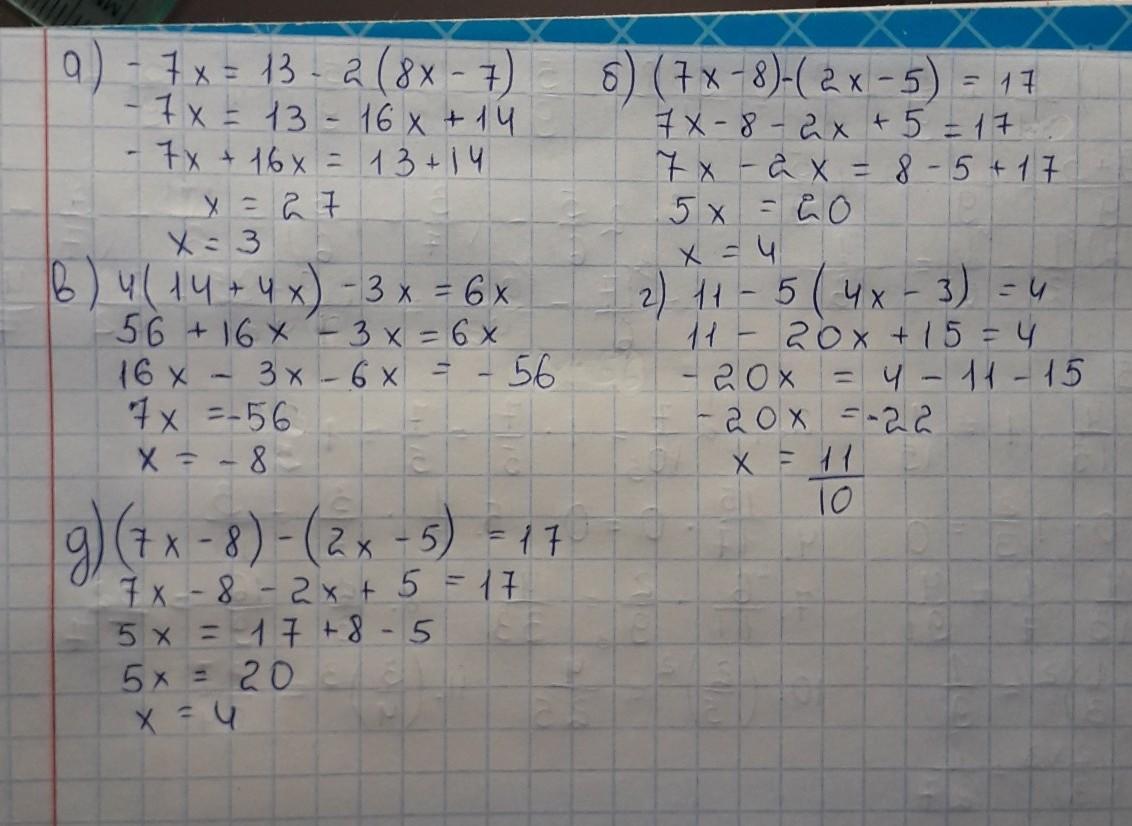 а) - 7x = 13 - 2(8x - 7)
- 7x = 13 - 16x + 14
- 7x + 16x = 13 + 14
x = 27
x = 3
б) (7x - 8) - (2x - 5) = 17
7x - 8 - 2x + 5 = 17
7x - 2x = 8 - 5 + 17
5x = 20
x = 4
в) 4(14 + 4x) - 3x = 6x
56 + 16x - 3x = 6x
16x - 3x - 6x = - 56
7x = -56
x = - 8
г) 11 - 5(4x - 3) = 4
11 - 20x + 15 = 4
- 20x = 4 - 11 - 15
- 20x = -22
x = 11/10
д) (7x - 8) - (2x - 5) = 17
7x - 8 - 2x + 5 = 17
5x = 17 + 8 - 5
5x = 20
x = 4